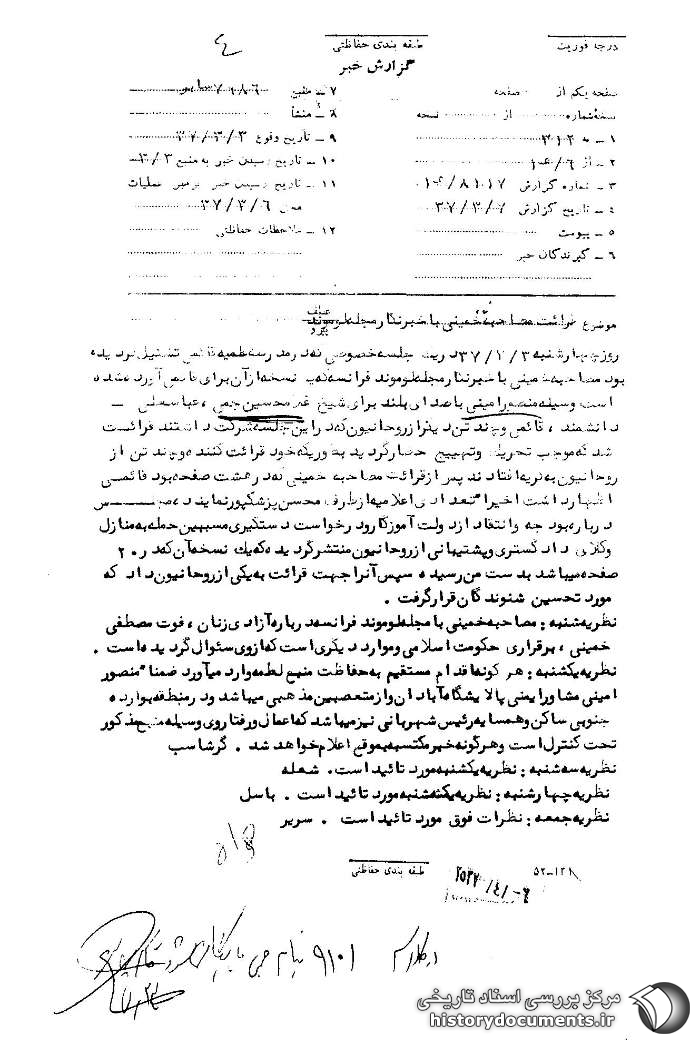 ٤
درجه فوریت
طبقه بندی حفاظتی
گزارش خبر
صفحه یکم از صفحه
شماره از نسخه
۱ ـ به ۳۱۲
۲ ـ از
۳ ـ شماره گزارش
٤ ـ تاریخ گزارش ۳۷/۳/۷
٥ ـ پیوست
٦ ـ گیرندگان خبر
۷ ـ منبع
۸ ـ منشأ
۹ ـ تاریخ وقوع ۳۷/۳/۳
۱۰ ـ تاریخ رسیدن خبر به منبع ۳/۳
۱۱ ـ تاریخ رسیدن خبر به رهبر عملیات
محل ۳۷/۳/۶
۱۲ ـ ملاحظات حفاظتی
موضوع قرائت مصاحبه خمینی با خبرنگار مجله لوموند
روز چهارشنبه ۳۷/۳/۳ جلسه خصوصی که در مدرسه علمیه قائمی تشکیل گردیده
بود مصاحبه خمینی با خبرنگار مجله لوموند فرانسه که نسخه از آن برای قائمی آورده شده
است وسیله منصور امینی با صدای بلند برای شیخ غلامحسین جمی ، عباسعلی ـ
دانشمند ، قائمی و چند تن دیگر از روحانیون که در این جلسه شرکت داشتند قرائت
شد که موجب تحریک و تهییج حضار گردید به طوریکه خود قرائت کننده و چند تن از
روحانیون به گریه افتادند پس از قرائت مصاحبه خمینی که در هشت صفحه بود قائمی
اظهار داشت اخیرا" تعدادی اعلامیه از طرف محسن پزشکپور نماینده مجلس
درباره بودجه و انتقاد از دولت آموزگار و درخواست دستگیری مسببین حمله به منازل
وکلای دادگستری و پشتیبانی از روحانیون منتشر گردیده که یک نسخه آن که در ۲۰
صفحه میباشد بدست من رسیده سپس آنرا جهت قرائت به یکی از روحانیون داد که
مورد تحسین شنوندگان قرار گرفت .
نظریه شنبه : مصاحبه خمینی با مجله لوموند فرانسه درباره آزادی زنان ، فوت مصطفی
خمینی ، برقراری حکومت اسلامی و موارد دیگری است که از وی سئوال گردیده است .
نظریه یکشنبه : هر گونه اقدام مستقیم به حفاظت منبع لطمه وارد میآورد ضمنا" منصور
امینی مشاور ایمنی پالایشگاه آبادان و از متعصبین مذهبی میباشد و در منطقه بوارده
جنوبی ساکن و همسایه رئیس شهربانی نیز میباشد که اعمال و رفتار وی وسیله منبع مذکور
تحت کنترل است و هرگونه خبر مکتسبه بموقع اعلام خواهد شد . گرشاسب
نظریه سه شنبه : نظریه یکشنبه مورد تائید است . شعله
نظریه چهارشنبه : نظریه یکشنبه مورد تائید است . باسل
نظریه جمعه : نظرات فوق مورد تائید است . سریر
طبقه بندی حفاظتی
۵۲-۱۲۱
۲۵۳۷/۴/-۶
۹۱۰۱
مرکز بررسی اسناد تاریخی
historydocuments.ir